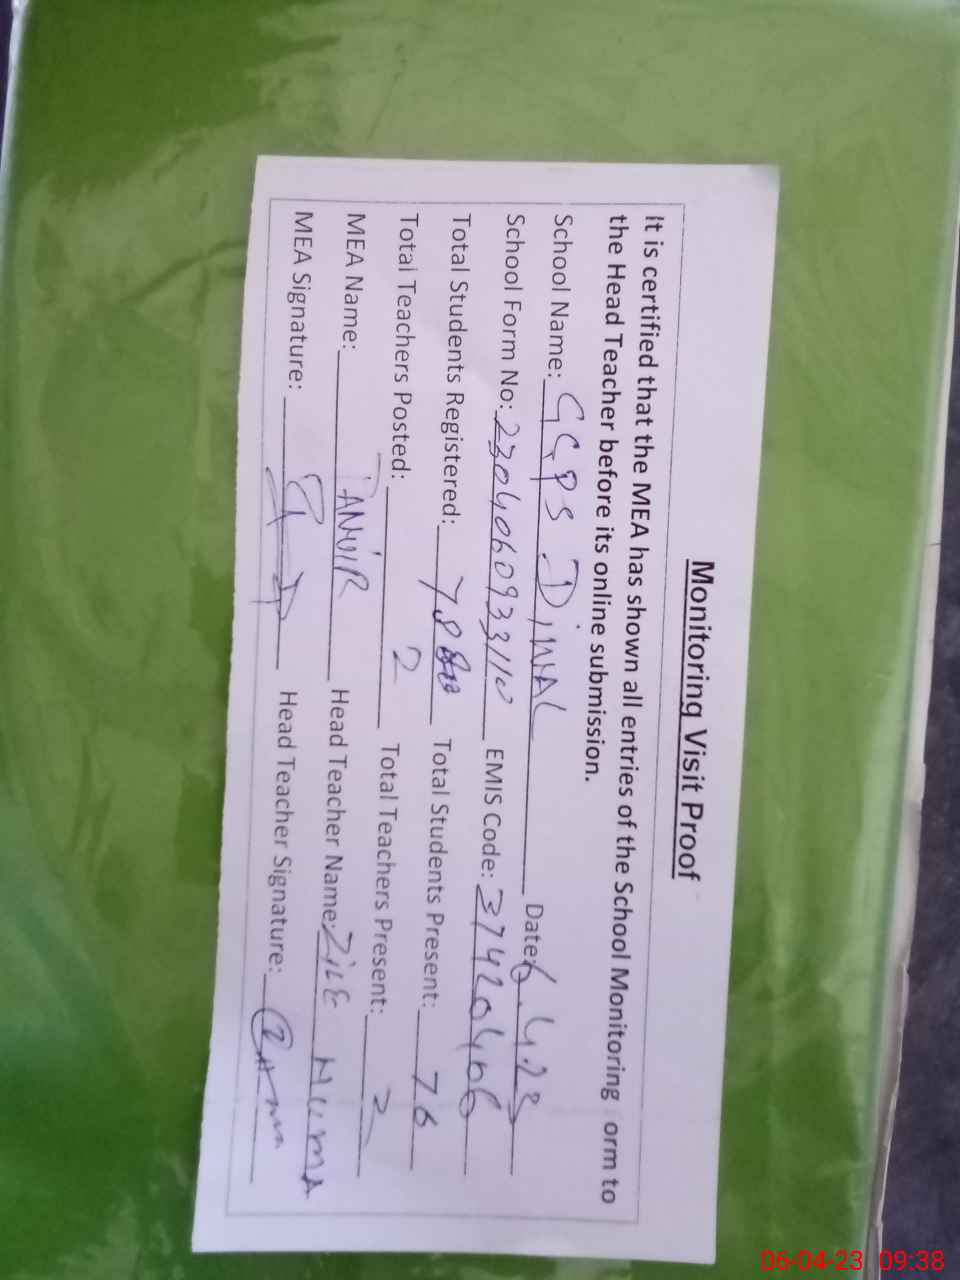 Monitoring Visit Proof
It is certified that the MEA has shown all entries of the School Monitoring orm to
the Head Teacher before its online submission.
School Name: GGPS DiMAL Date: 6.4.23
School Form No: 2304060933110 EMIS Code: 37420466
Total Students Registered: 78 Total Students Present: 76
Total Teachers Posted: 2 Total Teachers Present: 2
MEA Name: TANVIR Head Teacher Name: ZILE HUMA
MEA Signature: Head Teacher Signature:
06-04-23 09:38